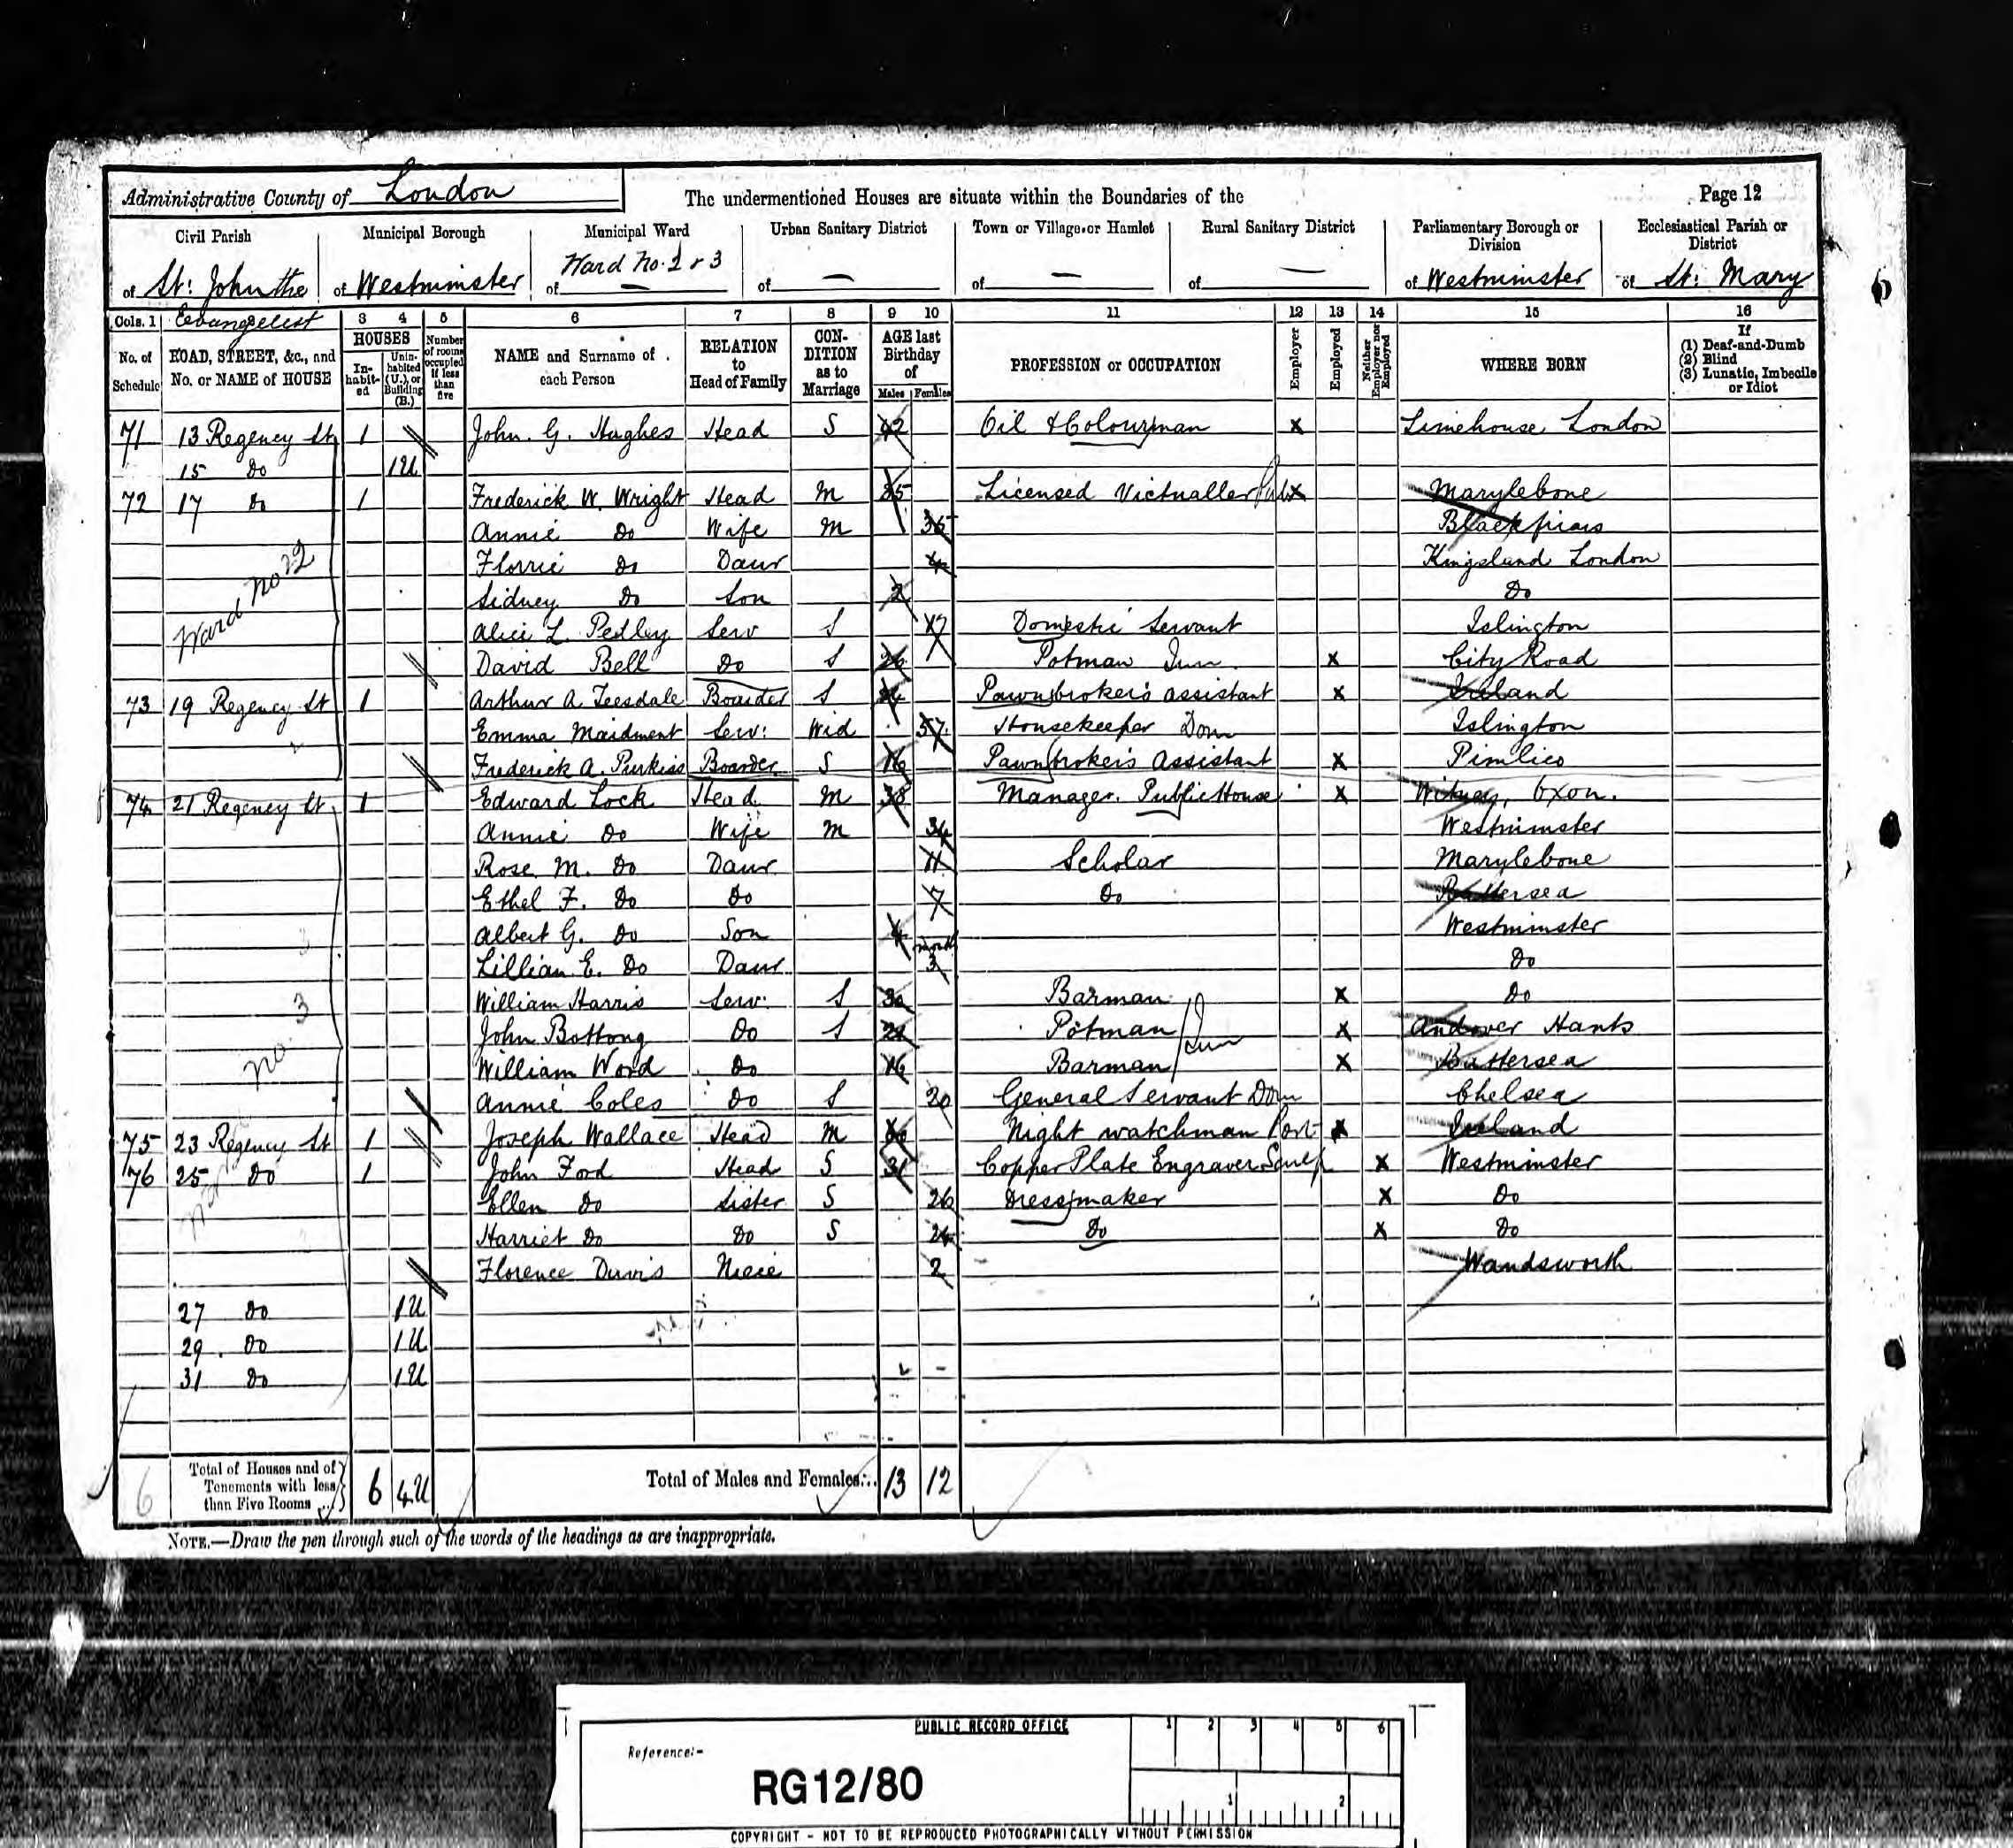 Administrative County of London The undermentioned Houses are situate within the Boundaries of the Page 12
Civil Parish Municipal Borough Municipal Ward Urban Sanitary District Town or Village or Hamlet Rural Sanitary District Parliamentary Borough or Division Ecclesiastical Parish or District
of St: John the Evangelist of Westminster Ward No. 2 & 3 of — of — of — of — of Westminster of St: Mary
Cols. 1 3 4 5 6 7 8 9 10 11 12 13 14 15 16
No. of Schedule ROAD, STREET, &c., and No. or NAME of HOUSE HOUSES Inhabited Uninhabited (U.), or Building (B.) Number of rooms occupied if less than five NAME and Surname of each Person RELATION to Head of Family CONDITION as to Marriage AGE last Birthday of Males Females PROFESSION or OCCUPATION Employer Employed Neither Employer nor Employed WHERE BORN If (1) Deaf-and-Dumb (2) Blind (3) Lunatic, Imbecile or Idiot
71 13 Regency St 1 John. G. Hughes Head S 42 Oil & Colourman X Limehouse London
15 Do 1U
72 17 Do 1 Frederick W. Wright Head M 35 Licensed Victualler X Marylebone
Annie Do Wife M 35 Blackfriars
Florrie Do Daur 4 Kingsland London
Sidney Do Son 2 Do
Ward No 2
Alice L. Pedley Serv S 17 Domestic Servant Islington
David Bell Do S 26 Potman Inn X City Road
73 19 Regency St 1 Arthur A. Teesdale Boarder S Pawnbroker's assistant X Ireland
Emma Maidment Serv: Wid 57 Housekeeper Dom Islington
Frederick A. Purkiss Boarder S 16 Pawnbroker's Assistant X Pimlico
74 21 Regency St 1 Edward Lock Head M 38 Manager. Public House X Witney, Oxon.
Annie Do Wife M 34 Westminster
Rose M. Do Daur 11 Scholar Marylebone
Ethel F. Do Do 7 Do Battersea
Albert G. Do Son 4 Westminster
Lillian E. Do Daur 3 month Do
William Harris Serv: S 30 Barman X Do
No. 3
John Bottong Do S Potman Inn X Andover Hants
William Word Do 16 Barman X Battersea
Annie Coles Do S 20 General Servant Dom Chelsea
75 23 Regency St 1 Joseph Wallace Head M 60 Night watchman Port X Ireland
76 25 Do 1 John Ford Head S 31 Copper Plate Engraver Sculp X Westminster
Ellen Do Sister S 26 Dressmaker X Do
Harriet Do Do S 24 Do X Do
Florence Davis Niece 2 Wandsworth
27 Do 1U
29 Do 1U
31 Do 1U
6 Total of Houses and of Tenements with less than Five Rooms 6 4U Total of Males and Females... 13 12
NOTE.—Draw the pen through such of the words of the headings as are inappropriate.
PUBLIC RECORD OFFICE 1 2 3 4 5 6
Reference:-
RG12/80
1 2
COPYRIGHT - NOT TO BE REPRODUCED PHOTOGRAPHICALLY WITHOUT PERMISSION